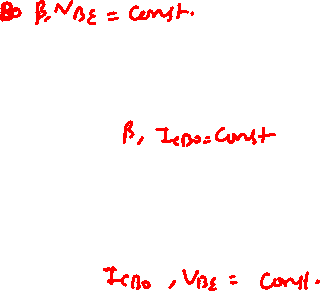 β, V_BE = Const.
β, I_CBO = Const
I_CBO, V_BE = Const.